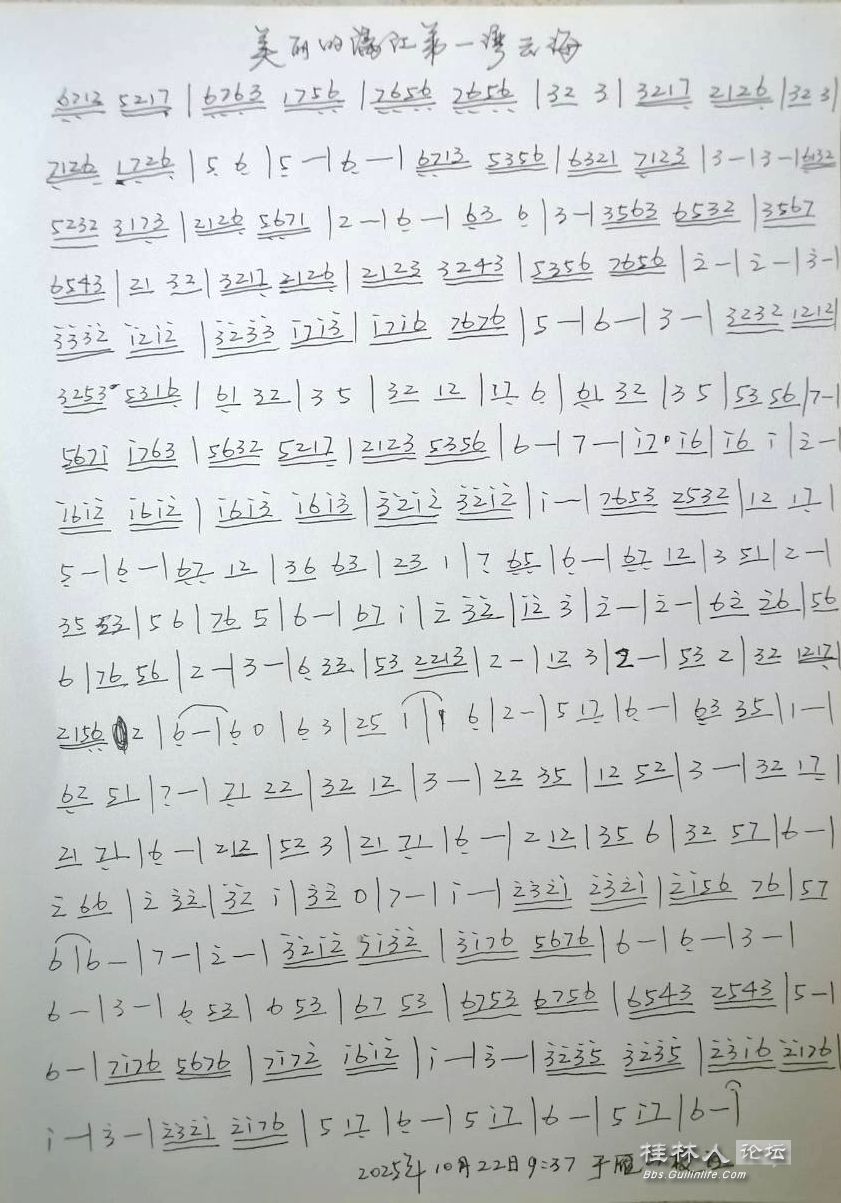 美丽的漓江第一湾云海
6713 5217 | 6763 1756 | 7656 7656 | 32 3 | 3217 2126 | 32 3 |
7126 1726 | 5 6 | 5 — | 6 — | 6713 5356 | 6321 7123 | 3 — | 3 — | 6132
5232 3173 | 2126 5671 | 2 — | 6 — | 63 6 | 3 — | 3563 6532 | 3567
6543 | 21 32 | 3217 2126 | 2123 3243 | 5356 7656 | 2̇ — | 2̇ — | 3̇ —
3̇3̇3̇2̇ 1̇2̇1̇2̇ | 3̇2̇3̇3̇ 1̇71̇3̇ | 1̇71̇6 7676 | 5 — | 6 — | 3 — | 3232 1212 |
3253 5316 | 61 32 | 3 5 | 32 12 | 17 6 | 61 32 | 3 5 | 53 56 | 7 — |
5671̇ 1̇763 | 5632 5217 | 2123 5356 | 6 — | 7 — | 1̇7· 1̇6 | 1̇6 1̇ | 2̇ —
1̇61̇2̇ 1̇61̇2̇ | 1̇61̇3̇ 1̇61̇3̇ | 3̇2̇1̇2̇ 3̇2̇1̇2̇ | 1̇ — | 7653 2532 | 12 17 |
5 — | 6 — | 67 12 | 36 63 | 23 1 | 7 65 | 6 — | 67 12 | 3 51 | 2 — |
35 53 | 5 6 | 76 5 | 6 — | 67 1̇ | 2̇ 3̇2̇ | 1̇2̇ 3̇ | 2̇ — | 2̇ — | 62̇ 2̇6 | 56
6 | 76 56 | 2 — | 3 — | 6 33 | 53 2213 | 2 — | 12 3 | 2 — | 53 2 | 32 1217 |
2156 2 | 6 — | 6 0 | 6 3 | 25 1 | 1 6 | 2 — | 5 17 | 6 — | 63 35 | 1 — |
62 51 | 7 — | 71 22 | 32 12 | 3 — | 22 35 | 12 52 | 3 — | 32 17 |
21 71 | 6 — | 2 12 | 52 3 | 21 71 | 6 — | 2 12 | 35 6 | 32 57 | 6 — |
2̇ 66 | 2̇ 3̇2̇ | 3̇2̇ 1̇ | 3̇2̇ 0 | 7 — | 1̇ — | 2̇3̇2̇1̇ 2̇3̇2̇1̇ | 2̇1̇56 76 | 57
6 | 6 — | 7 — | 2̇ — | 3̇2̇1̇2̇ 5̇1̇3̇2̇ | 3̇1̇76 5676 | 6 — | 6 — | 3 — |
6 — | 3 — | 6 53 | 6 53 | 67 53 | 6753 6756 | 6543 2543 | 5 — |
6 — | 71̇76 5676 | 71̇72̇ 1̇61̇2̇ | 1̇ — | 3̇ — | 3̇2̇3̇5 3̇2̇3̇5 | 2̇3̇1̇6 2̇1̇76 |
1̇ — | 3̇ — | 2̇3̇2̇1̇ 2̇1̇76 | 5 17 | 6 — | 5 1̇7 | 6 — | 5 1̇7 | 6 — |
2025年10月22日9:37 于雁山
桂林人论坛
Bbs.Guilinlife.Com